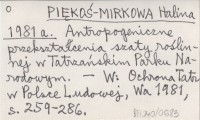 PIĘKOŚ-MIRKOWA Halina
1981a. Antropogeniczne
przekształcenia szaty roślin-
nej w Tatrzańskim Parku Na-
rodowym. – W: Ochrona Tatr
w Polsce Ludowej, Wa 1981,
s. 259-286.